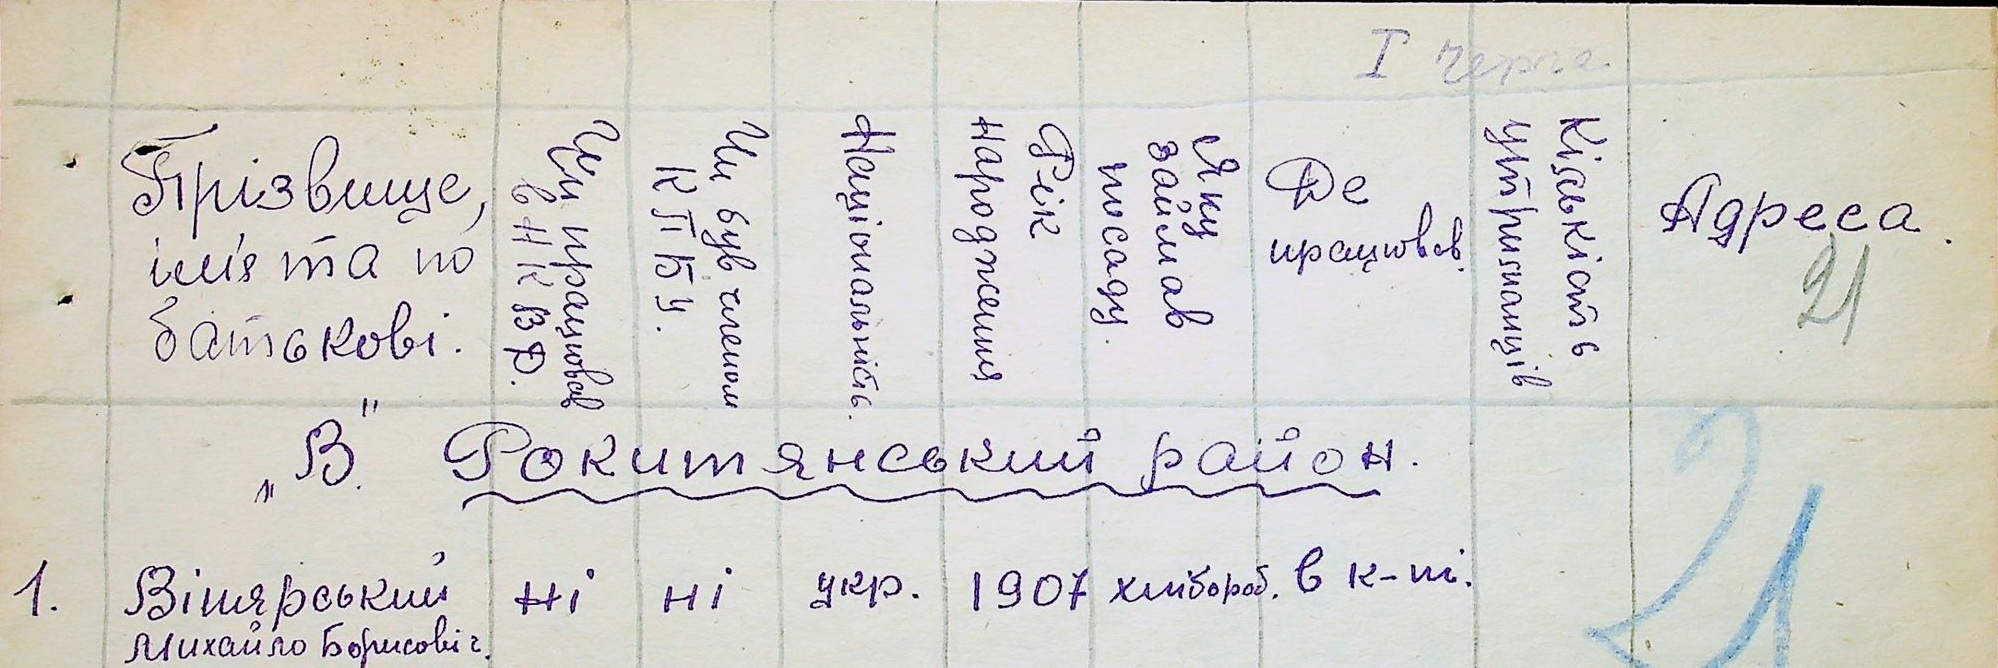 I черга
Прізвище,
ім'я та по
батькові.
Чи працював
в НКВД.
Чи був членом
КПБУ.
Національність.
Рік
народження
Яку
займав
посаду
Де
працював.
Кількість
утриманців
Адреса.
21
„В" Рокитянський район.
21
1. Вітярський ні ні укр. 1907 хлібороб. в к-пі.
Михайло Борисовіч.